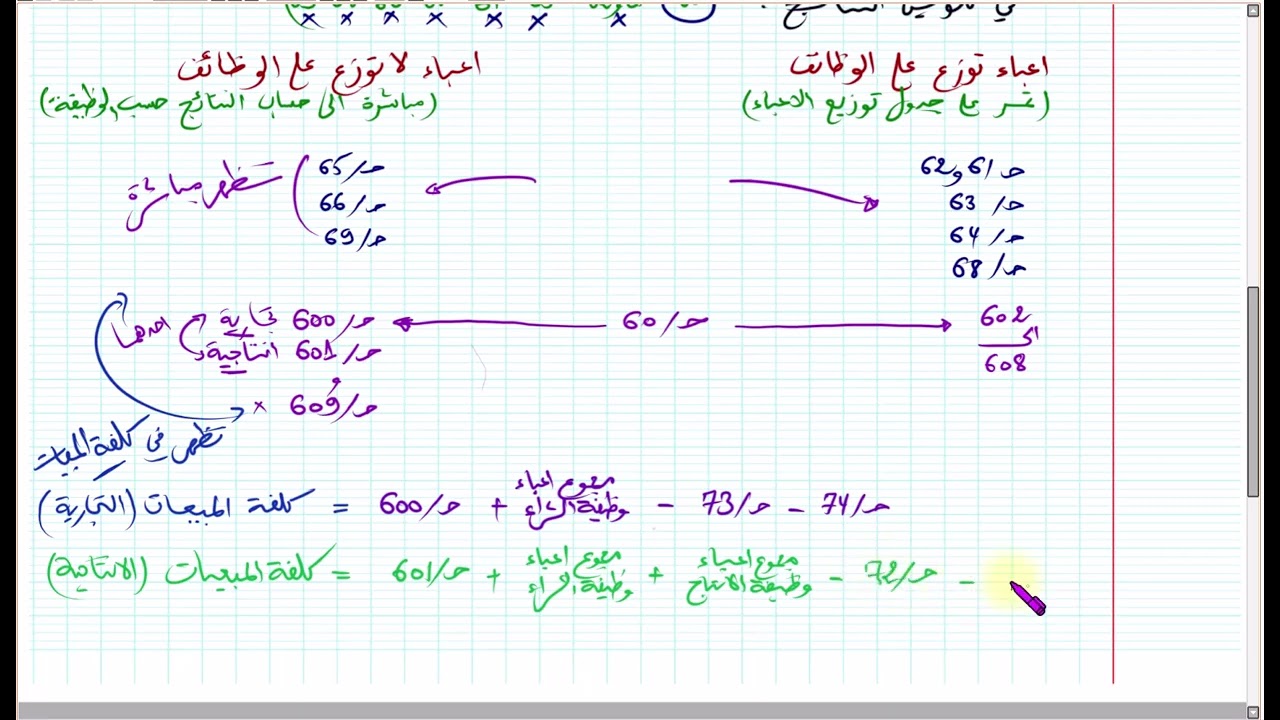 اعباء توزع على الوظائف
(تمر على جدول توزيع الاعباء)
اعباء لا توزع على الوظائف
(مباشرة الى حساب النتائج حسب الوظيفة)
ح/61 و62
ح/63
ح/64
ح/68
ح/65
ح/66
ح/69
تظهر مباشرة
602
الى
608
ح/60
ح/600 تجارية
ح/601 انتاجية
احدهما
و
ح/609 ×
تظهر في كلفة المبيعات
كلفة المبيعات (التجارية) = ح/600 + مجموع اعباء وظيفة الشراء - ح/73 - ح/74
كلفة المبيعات (الانتاجية) = ح/601 + مجموع اعباء وظيفة الشراء + مجموع اعباء وظيفة الانتاج - ح/72 -